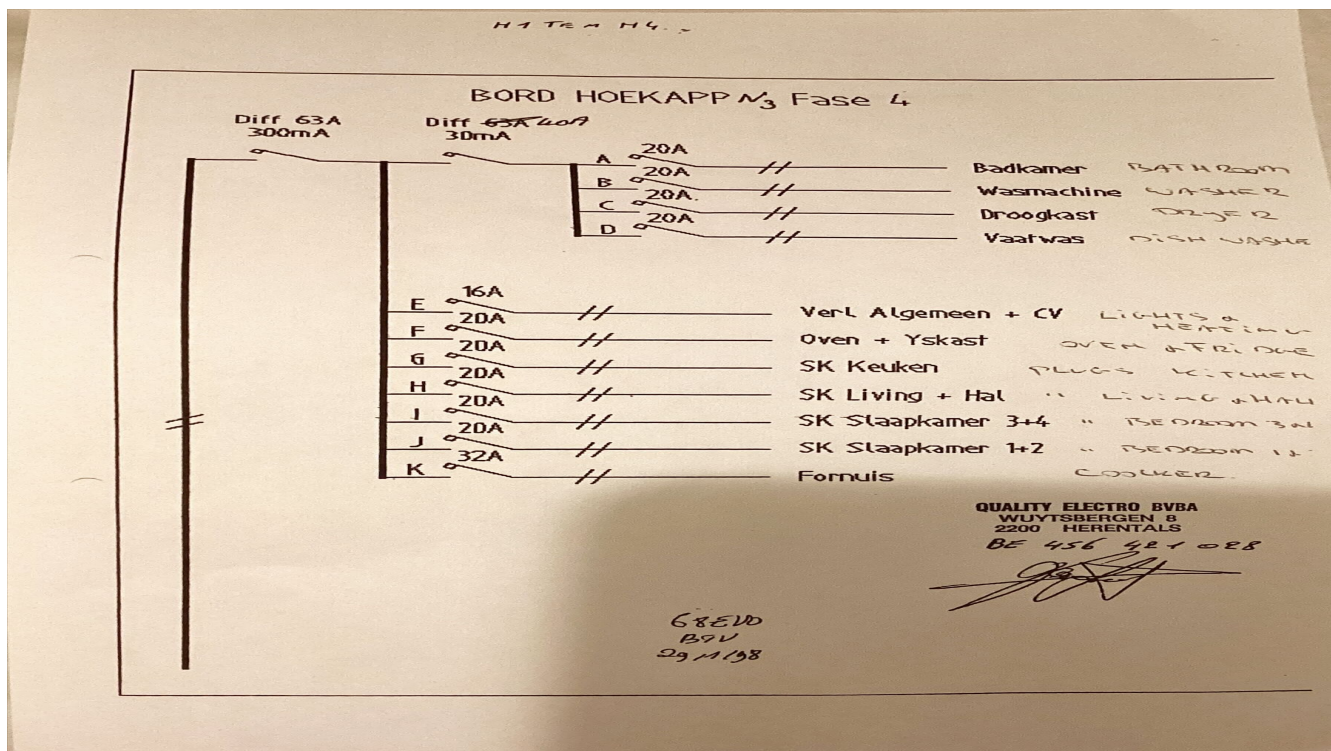 H1 TEM H4..
BORD HOEKAPP N3 Fase 4
Diff 63A
300mA
Diff 63A 40A
30mA
A 20A Badkamer BATHROOM
B 20A Wasmachine WASHER
C 20A. Droogkast DRYER
D 20A Vaatwas DISH WASHE
E 16A Verl Algemeen + CV LIGHTS &
HEATING
F 20A Oven + Yskast OVEN & FRIDGE
G 20A SK Keuken PLUGS KITCHEN
H 20A SK Living + Hal " LIVING & HALL
I 20A SK Slaapkamer 3+4 " BEDROOM 3
J 20A SK Slaapkamer 1+2 " BEDROOM 1+
K 32A Fornuis COOKER.
QUALITY ELECTRO BVBA
WUYTSBERGEN 8
2200 HERENTALS
BE 456 421 028